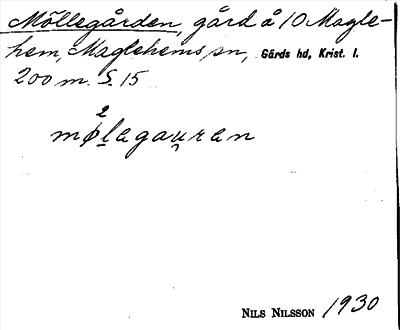 Möllegården, gård å 10 Magle-
hem, Maglehems sn, Gärds hd, Krist. l.
200 m. S. 15
2
mølagau̯ran
NILS NILSSON 1930